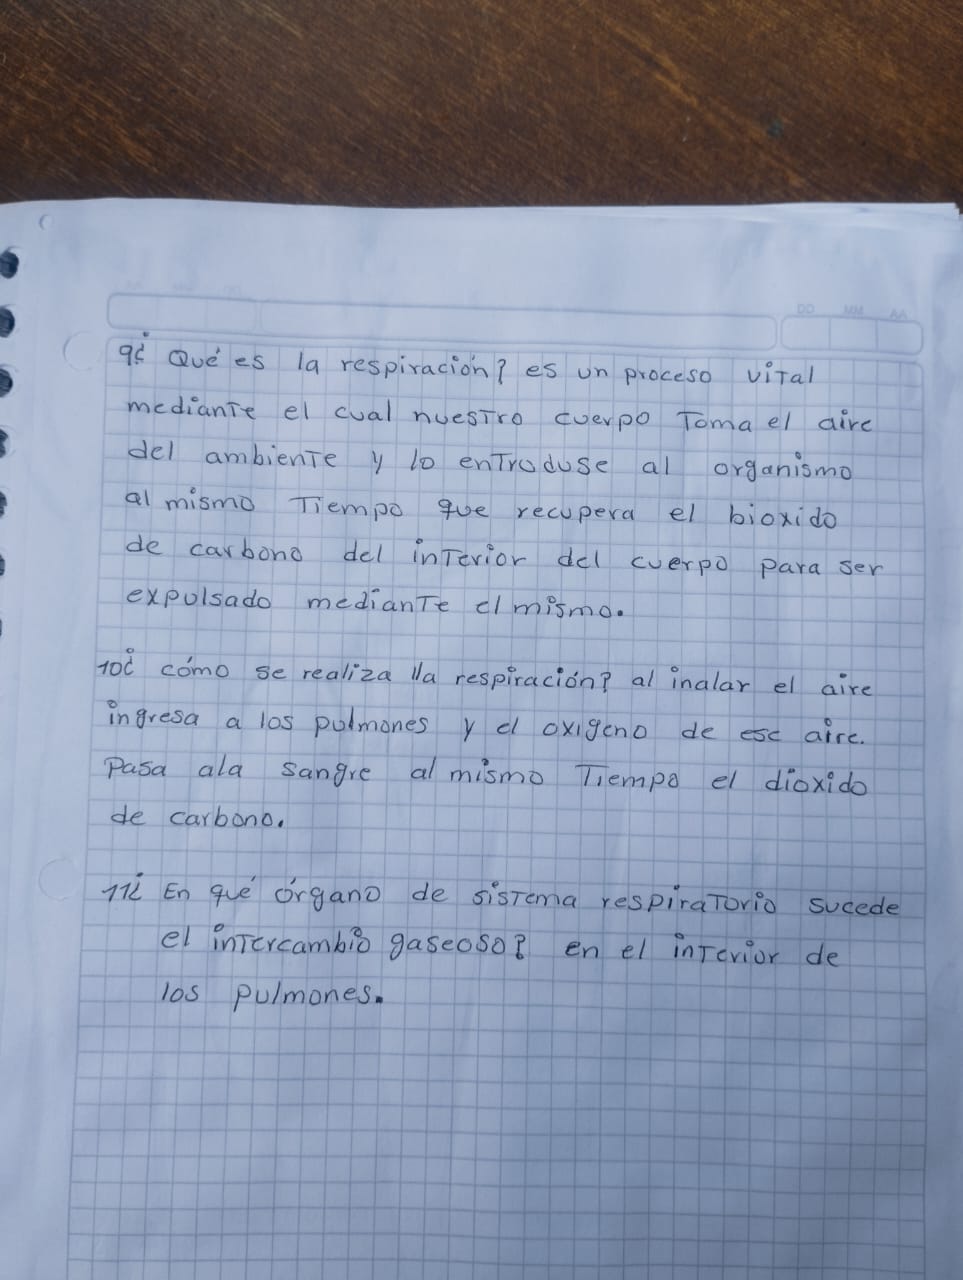 DD MM AA
9¿ Qué es la respiración? es un proceso vital
mediante el cual nuestro cuerpo Toma el aire
del ambiente y lo entroduse al organismo
al mismo Tiempo que recupera el bioxido
de carbono del interior del cuerpo para ser
expulsado mediante el mismo.
10¿ cómo se realiza lla respiración? al inalar el aire
ingresa a los pulmones y el oxigeno de ese aire.
Pasa ala sangre al mismo Tiempo el dioxido
de carbono.
11¿ En qué órgano de sistema respiratorio sucede
el intercambio gaseoso? en el interior de
los pulmones.